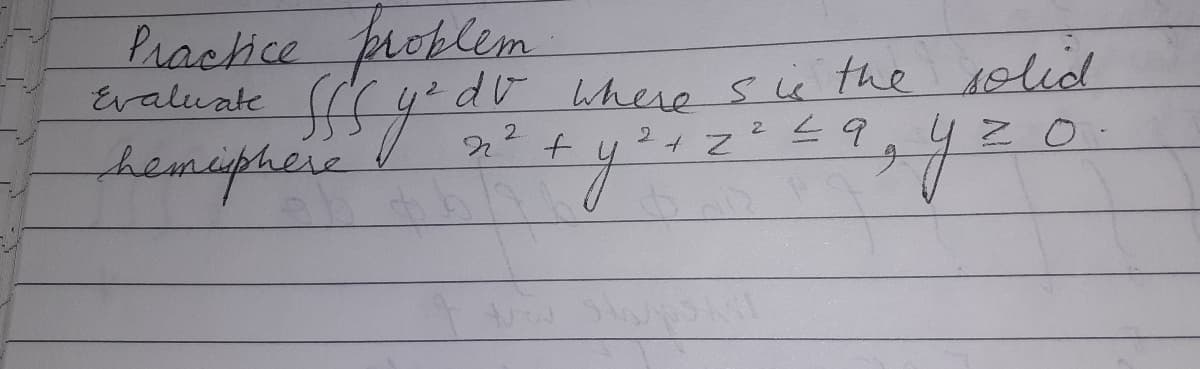 Practice problem
Evaluate ∭ y² dV where S is the solid
hemisphere x² + y² + z² ≤ 9, y ≥ 0.